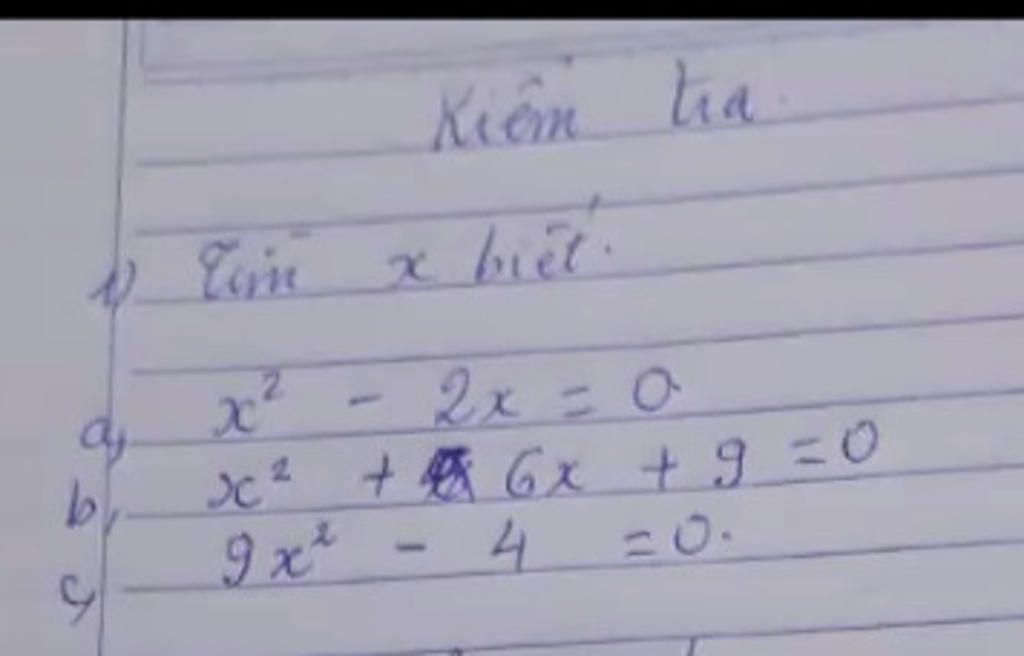 Kiểm tra
1) Tìm x biết.
a, x² - 2x = 0
b, x² + 6x + 9 = 0
c, 9x² - 4 = 0.